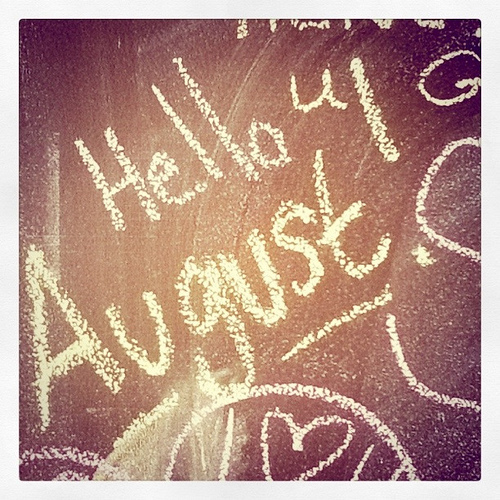 Hello 4
August